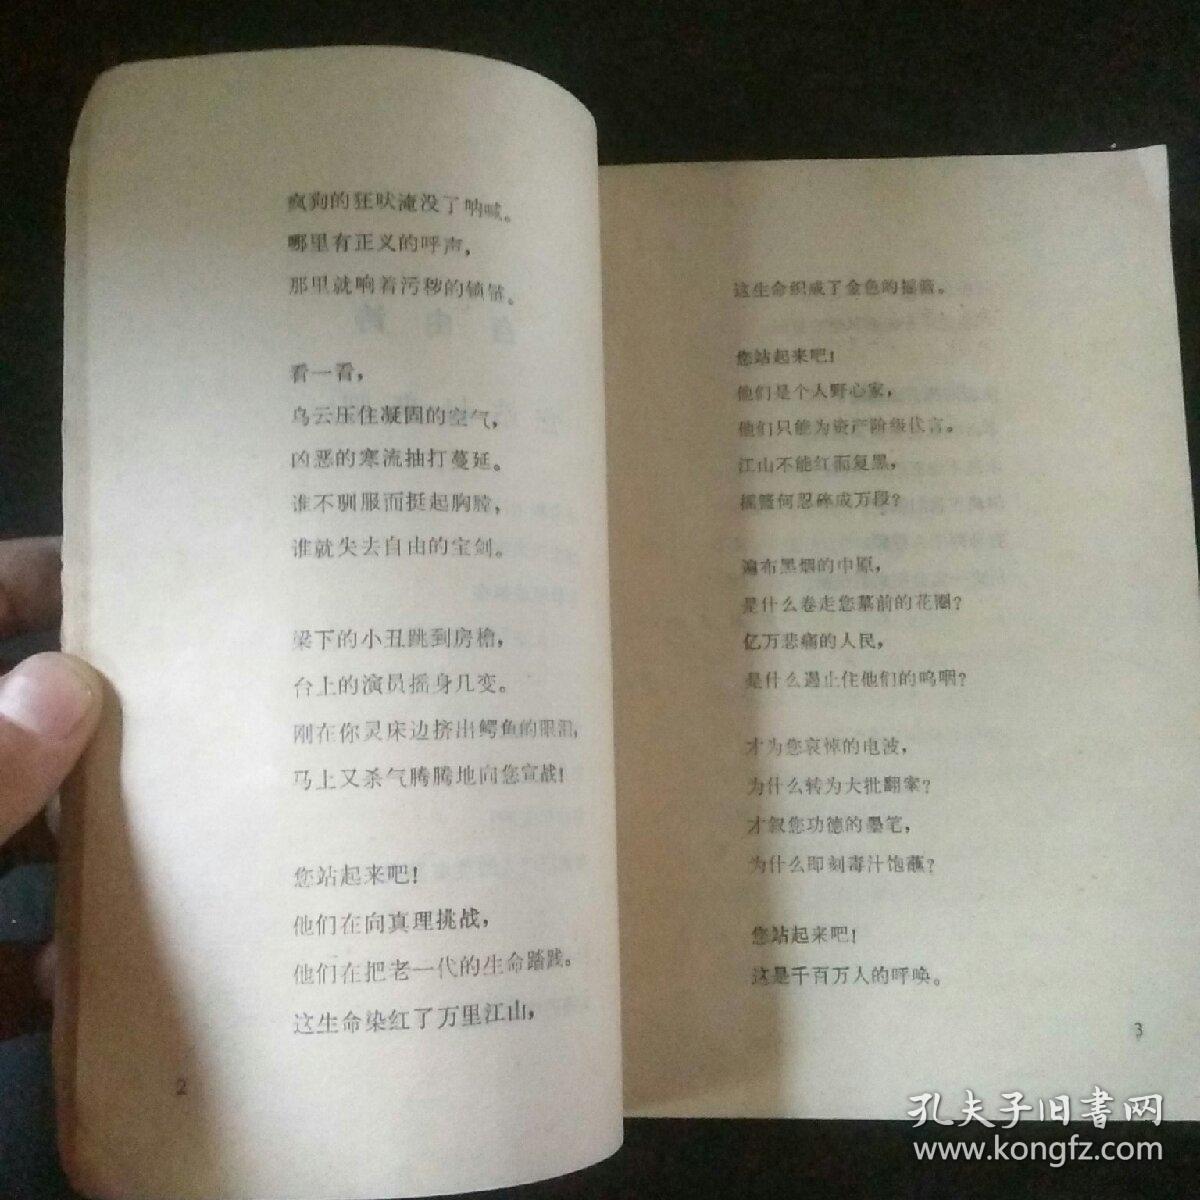 疯狗的狂吠淹没了呐喊。
哪里有正义的呼声，
那里就响着污秽的锁链。
看一看，
乌云压住凝固的空气，
凶恶的寒流抽打蔓延。
谁不驯服而挺起胸膛，
谁就失去自由的宝剑。
梁下的小丑跳到房檐，
台上的演员摇身几变。
刚在你灵床边挤出鳄鱼的眼泪，
马上又杀气腾腾地向您宣战！
您站起来吧！
他们在向真理挑战，
他们在把老一代的生命踏践。
这生命染红了万里江山，
2
这生命织成了金色的摇篮。
您站起来吧！
他们是个人野心家，
他们只能为资产阶级代言。
江山不能红而复黑，
摇篮何忍碎成万段？
遍布黑烟的中原，
是什么卷走您墓前的花圈？
亿万悲痛的人民，
是什么遏止住他们的呜咽？
才为您哀悼的电波，
为什么转为大批翻案？
才叙您功德的墨笔，
为什么即刻毒汁饱蘸？
您站起来吧！
这是千百万人的呼唤。
3
孔夫子旧书网
www.kongfz.com